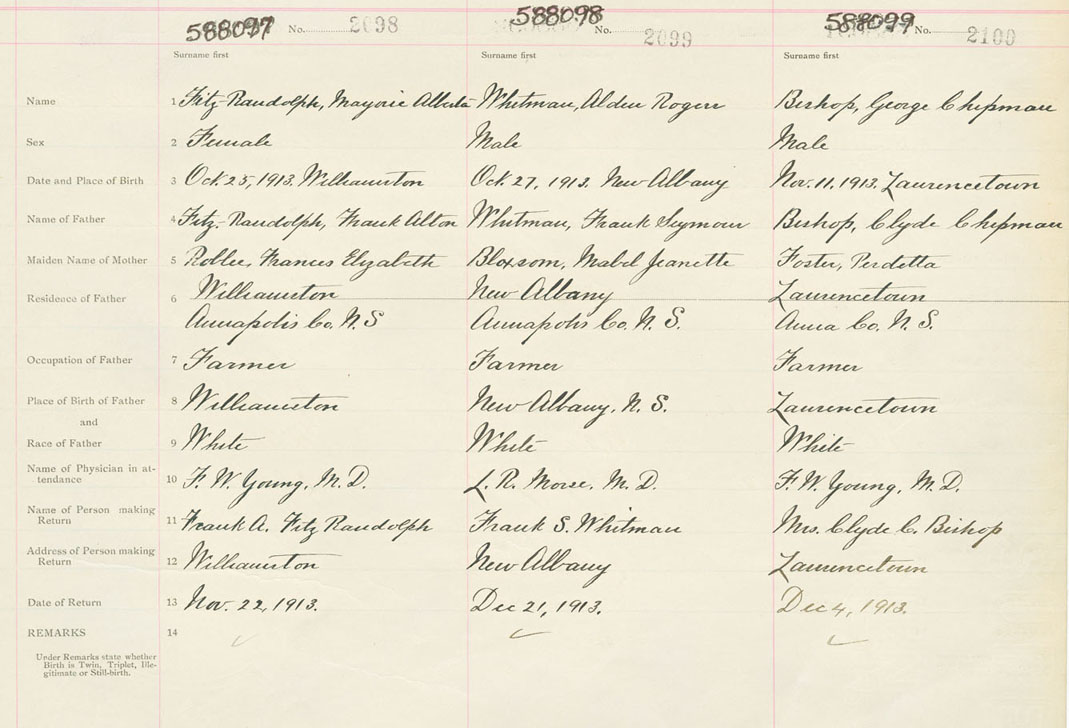 588097 No. 2098 588098 No. 2099 588099 No. 2100
Surname first Surname first Surname first
Name 1 Fitz-Randolph, Marjorie Alberta Whitman, Alden Rogers Bishop, George Chipman
Sex 2 Female Male Male
Date and Place of Birth 3 Oct. 25, 1913. Williamston Oct. 27, 1913. New Albany Nov. 11, 1913. Laurencetown
Name of Father 4 Fitz-Randolph, Frank Alton Whitman, Frank Seymour Bishop, Clyde Chipman
Maiden Name of Mother 5 Frances Elizabeth Bloxsom, Mabel Jeanette Foster, Perdetta
Residence of Father 6 Williamston New Albany Laurencetown
Annapolis Co. N.S Annapolis Co. N.S. Anna Co. N.S.
Occupation of Father 7 Farmer Farmer Farmer
Place of Birth of Father 8 Williamston New Albany, N.S. Laurencetown
and
Race of Father 9 White White White
Name of Physician in at-
tendance 10 F. W. Young, M.D. L. R. Morse, M.D. F. W. Young, M.D.
Name of Person making
Return 11 Frank A. Fitz Randolph Frank S. Whitman Mrs. Clyde C. Bishop
Address of Person making
Return 12 Williamston New Albany Laurencetown
Date of Return 13 Nov. 22, 1913. Dec 21, 1913. Dec 4, 1913.
REMARKS 14
Under Remarks state whether
Birth is Twin, Triplet, Ille-
gitimate or Still-birth.